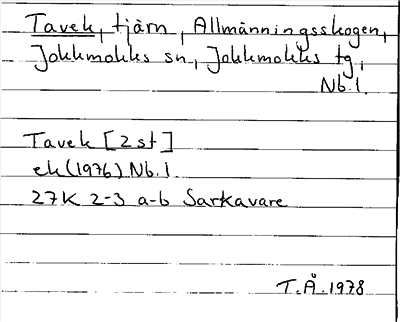 Tavek, tjärn, Allmänningsskogen,
Jokkmokks sn, Jokkmokks tg,
Nb. l.
Tavek [2 st]
ek (1976) Nb. l
27K 2-3 a-b Sarkavare
T. Å. 1978